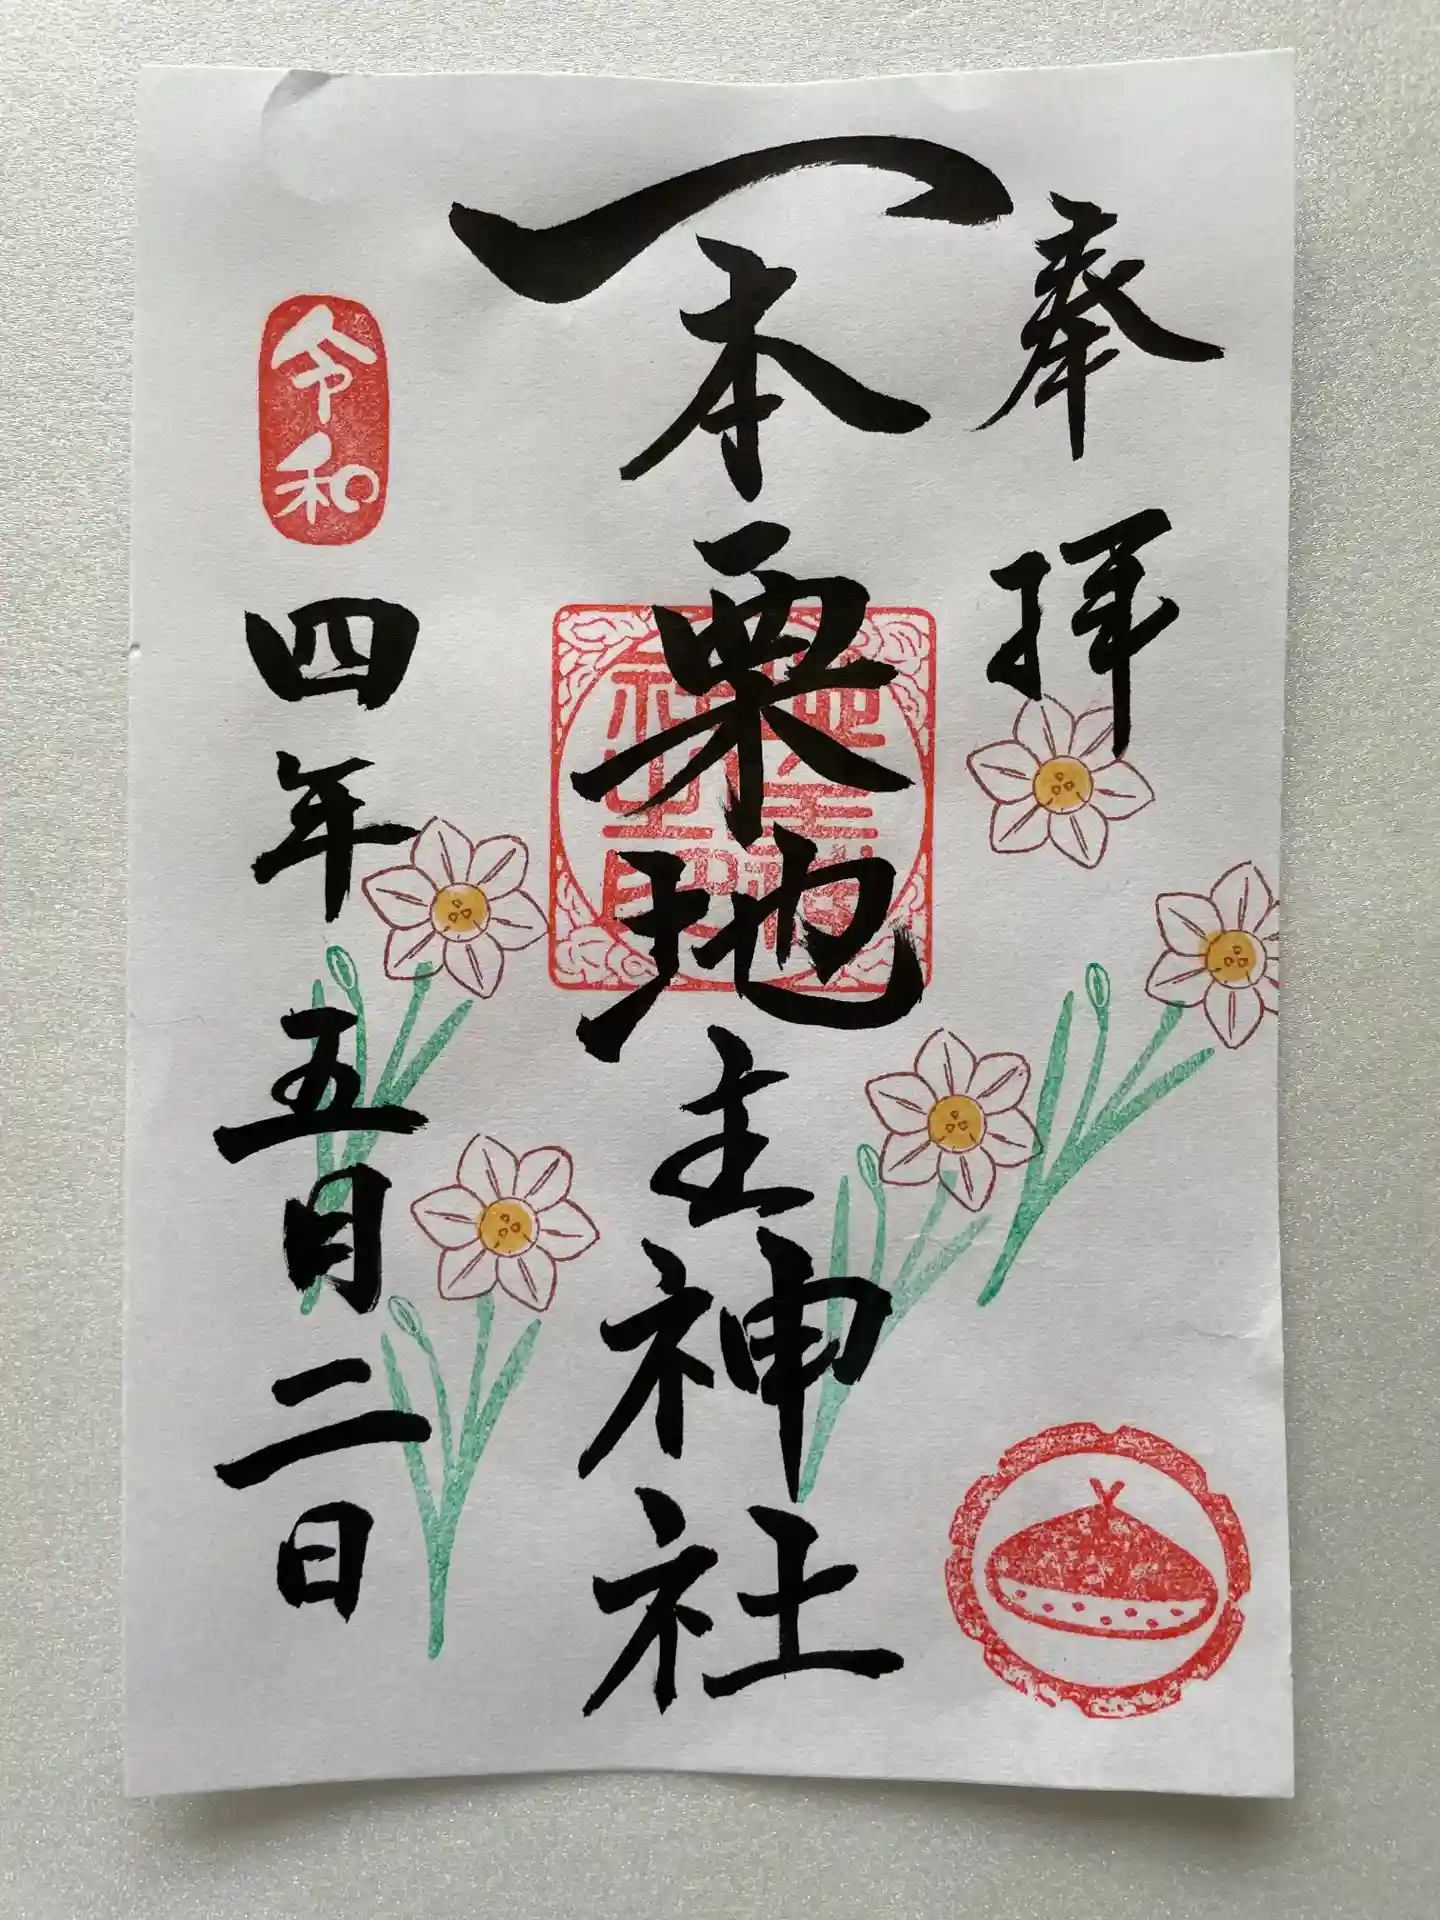 奉拝
一本栗地主神社
令和四年五月二日